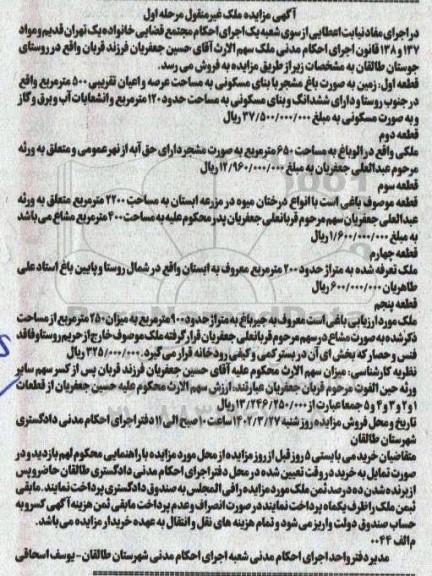 آگهی مزایده ملک غیرمنقول مرحله اول
در اجرای مفاد نیابت اعطایی از سوی شعبه یک اجرای احکام مجتمع قضایی خانواده یک تهران قدیم و مواد
۱۳۷ و ۱۳۸ قانون اجرای احکام مدنی ملک سهم الارث آقای حسین جعفریان فرزند قربان واقع در روستای
جوستان طالقان به مشخصات زیر از طریق مزایده به فروش می رسد.
قطعه اول: زمین به صورت باغ مشجر با بنای مسکونی به مساحت عرصه و اعیان تقریبی ۵۰۰ مترمربع واقع
در جنوب روستا و دارای ششدانگ و بنای مسکونی به مساحت حدود ۱۲۰ مترمربع و انشعابات آب و برق و گاز
و به صورت مسکونی به مبلغ ۳۷/۵۰۰/۰۰۰/۰۰۰ ریال
قطعه دوم
ملکی واقع در الوباغ به مساحت ۶۵۰ مترمربع به صورت مشجر دارای حق آبه از نهر عمومی و متعلق به ورثه
مرحوم عبدالعلی جعفریان به مبلغ ۱۲/۹۶۰/۰۰۰/۰۰۰ ریال
قطعه سوم
قطعه موصوف باغی است با انواع درختان میوه در مزرعه ابستان به مساحت ۲۲۰۰ مترمربع متعلق به ورثه
عبدالعلی جعفریان سهم مرحوم قربانعلی جعفریان پدر محکوم علیه به مساحت ۴۰۰ مترمربع مشاع می باشد
به مبلغ ۱/۶۰۰/۰۰۰/۰۰۰ ریال
قطعه چهارم
ملک تعرفه شده به متراژ حدود ۲۰۰ مترمربع معروف به ابستان واقع در شمال روستا و پایین باغ استاد علی
طاهریان ۶۰۰/۰۰۰/۰۰۰ ریال
قطعه پنجم
ملک مورد ارزیابی باغی است معروف به چیرباغ به متراژ حدود ۹۰۰ مترمربع به میزان ۲۵۰ مترمربع از مساحت
ذکر شده به صورت مشاع در سهم مرحوم قربانعلی جعفریان قرار گرفته ملک موصوف خارج از حریم روستا و فاقد
فنس و حصار که بخش ای آن در بستر کمی و کیفی رودخانه قرار می گیرد. ۳۲۵/۰۰۰/۰۰۰ ریال
نظریه کارشناسی: میزان سهم الارث محکوم علیه آقای حسین جعفریان فرزند قربان پس از کسر سهم سایر
ورثه حین الفوت مرحوم قربان جعفریان عبارتند: ارزش سهم الارث محکوم علیه حسین جعفریان از قطعات
۱ و ۲ و ۳ و ۴ و ۵ جمعا عبارت از ۱۳/۲۴۶/۲۵۰/۰۰۰ ریال
تاریخ و محل فروش مزایده روز شنبه ۱۴۰۲/۳/۲۷ ساعت ۱۰ صبح الی ۱۱ دفتر اجرای احکام مدنی دادگستری
شهرستان طالقان
متقاضیان خرید می بایستی ۵ روز قبل از روز مزایده از محل مورد مزایده با راهنمایی محکوم لهم بازدید و در
صورت تمایل به خرید در وقت تعیین شده در محل دفتر اجرای احکام مدنی دادگستری طالقان حاضر و پس
از برنده شدن ده درصد ثمن ملک مورد مزایده را فی المجلس به صندوق دادگستری پرداخت نمایند. مابقی
ثمن ملک را ظرف یکماه پرداخت نمایند در صورت انصراف و عدم پرداخت مابقی ثمن هزینه آگهی کسر و به
حساب صندوق دولت واریز می شود و تمام هزینه های نقل و انتقال به عهده خریدار مزایده می باشد.
م الف ۰۰۴۴
مدیر دفتر واحد اجرای احکام مدنی شعبه اجرای احکام مدنی شهرستان طالقان - یوسف اسحاقی